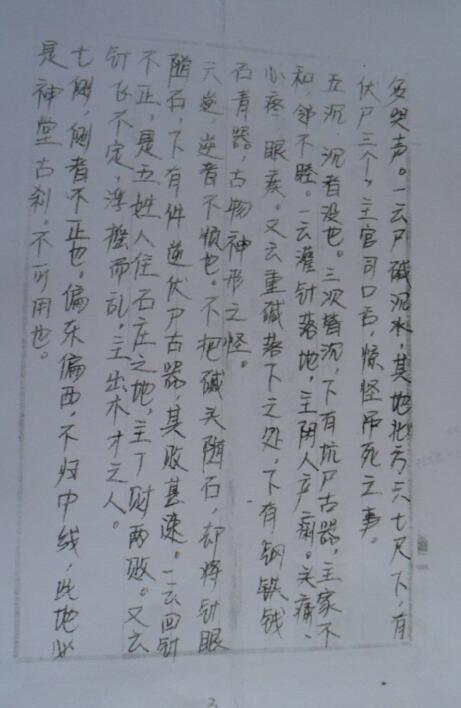 负哭声。一云尸碱沉水，其地北方六七尺下，有
伏尸三个，主官司口舌，惊怪吊死之事。
五沉，沉者没也。三次皆沉，下有坑尸古器，主家不
和，邻不睦。一云灌针落地，主阴人产痢。头痛、
心疼、眼疾。又云重碱落下之处，下有铜铁钱
石青器，古物神形之怪。
六逆，逆者不顺也。不把碱头随石，却将针眼
随石，下有件逆伏尸古器，其败甚速。一云回针
不正，是五姓人住石庄之地，主丁财两败。又云
针飞不定，浮摇而乱，主出木才之人。
七侧，侧者不正也。偏东偏西，不归中线，此地必
是神堂古刹，不可用也。
3